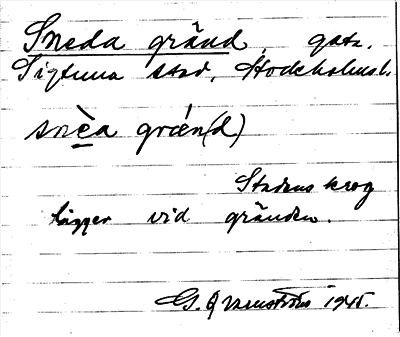 Sneda gränd, gata.
Sigtuna stad, Stockholmsl.
snèa grän(d)
Stadens krog
ligger vid gränden.
G. Qvarnström 1945.